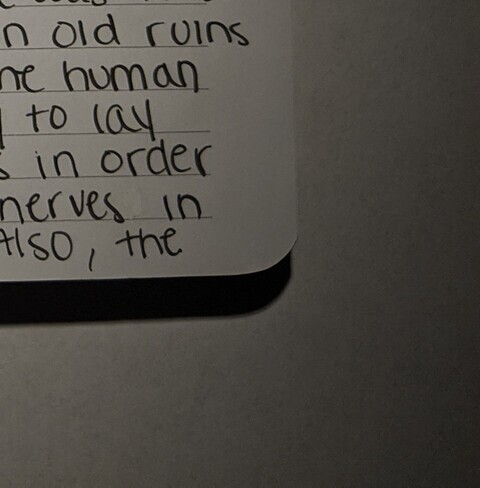 n old ruins
he human
to lay
s in order
nerves in
Also, the